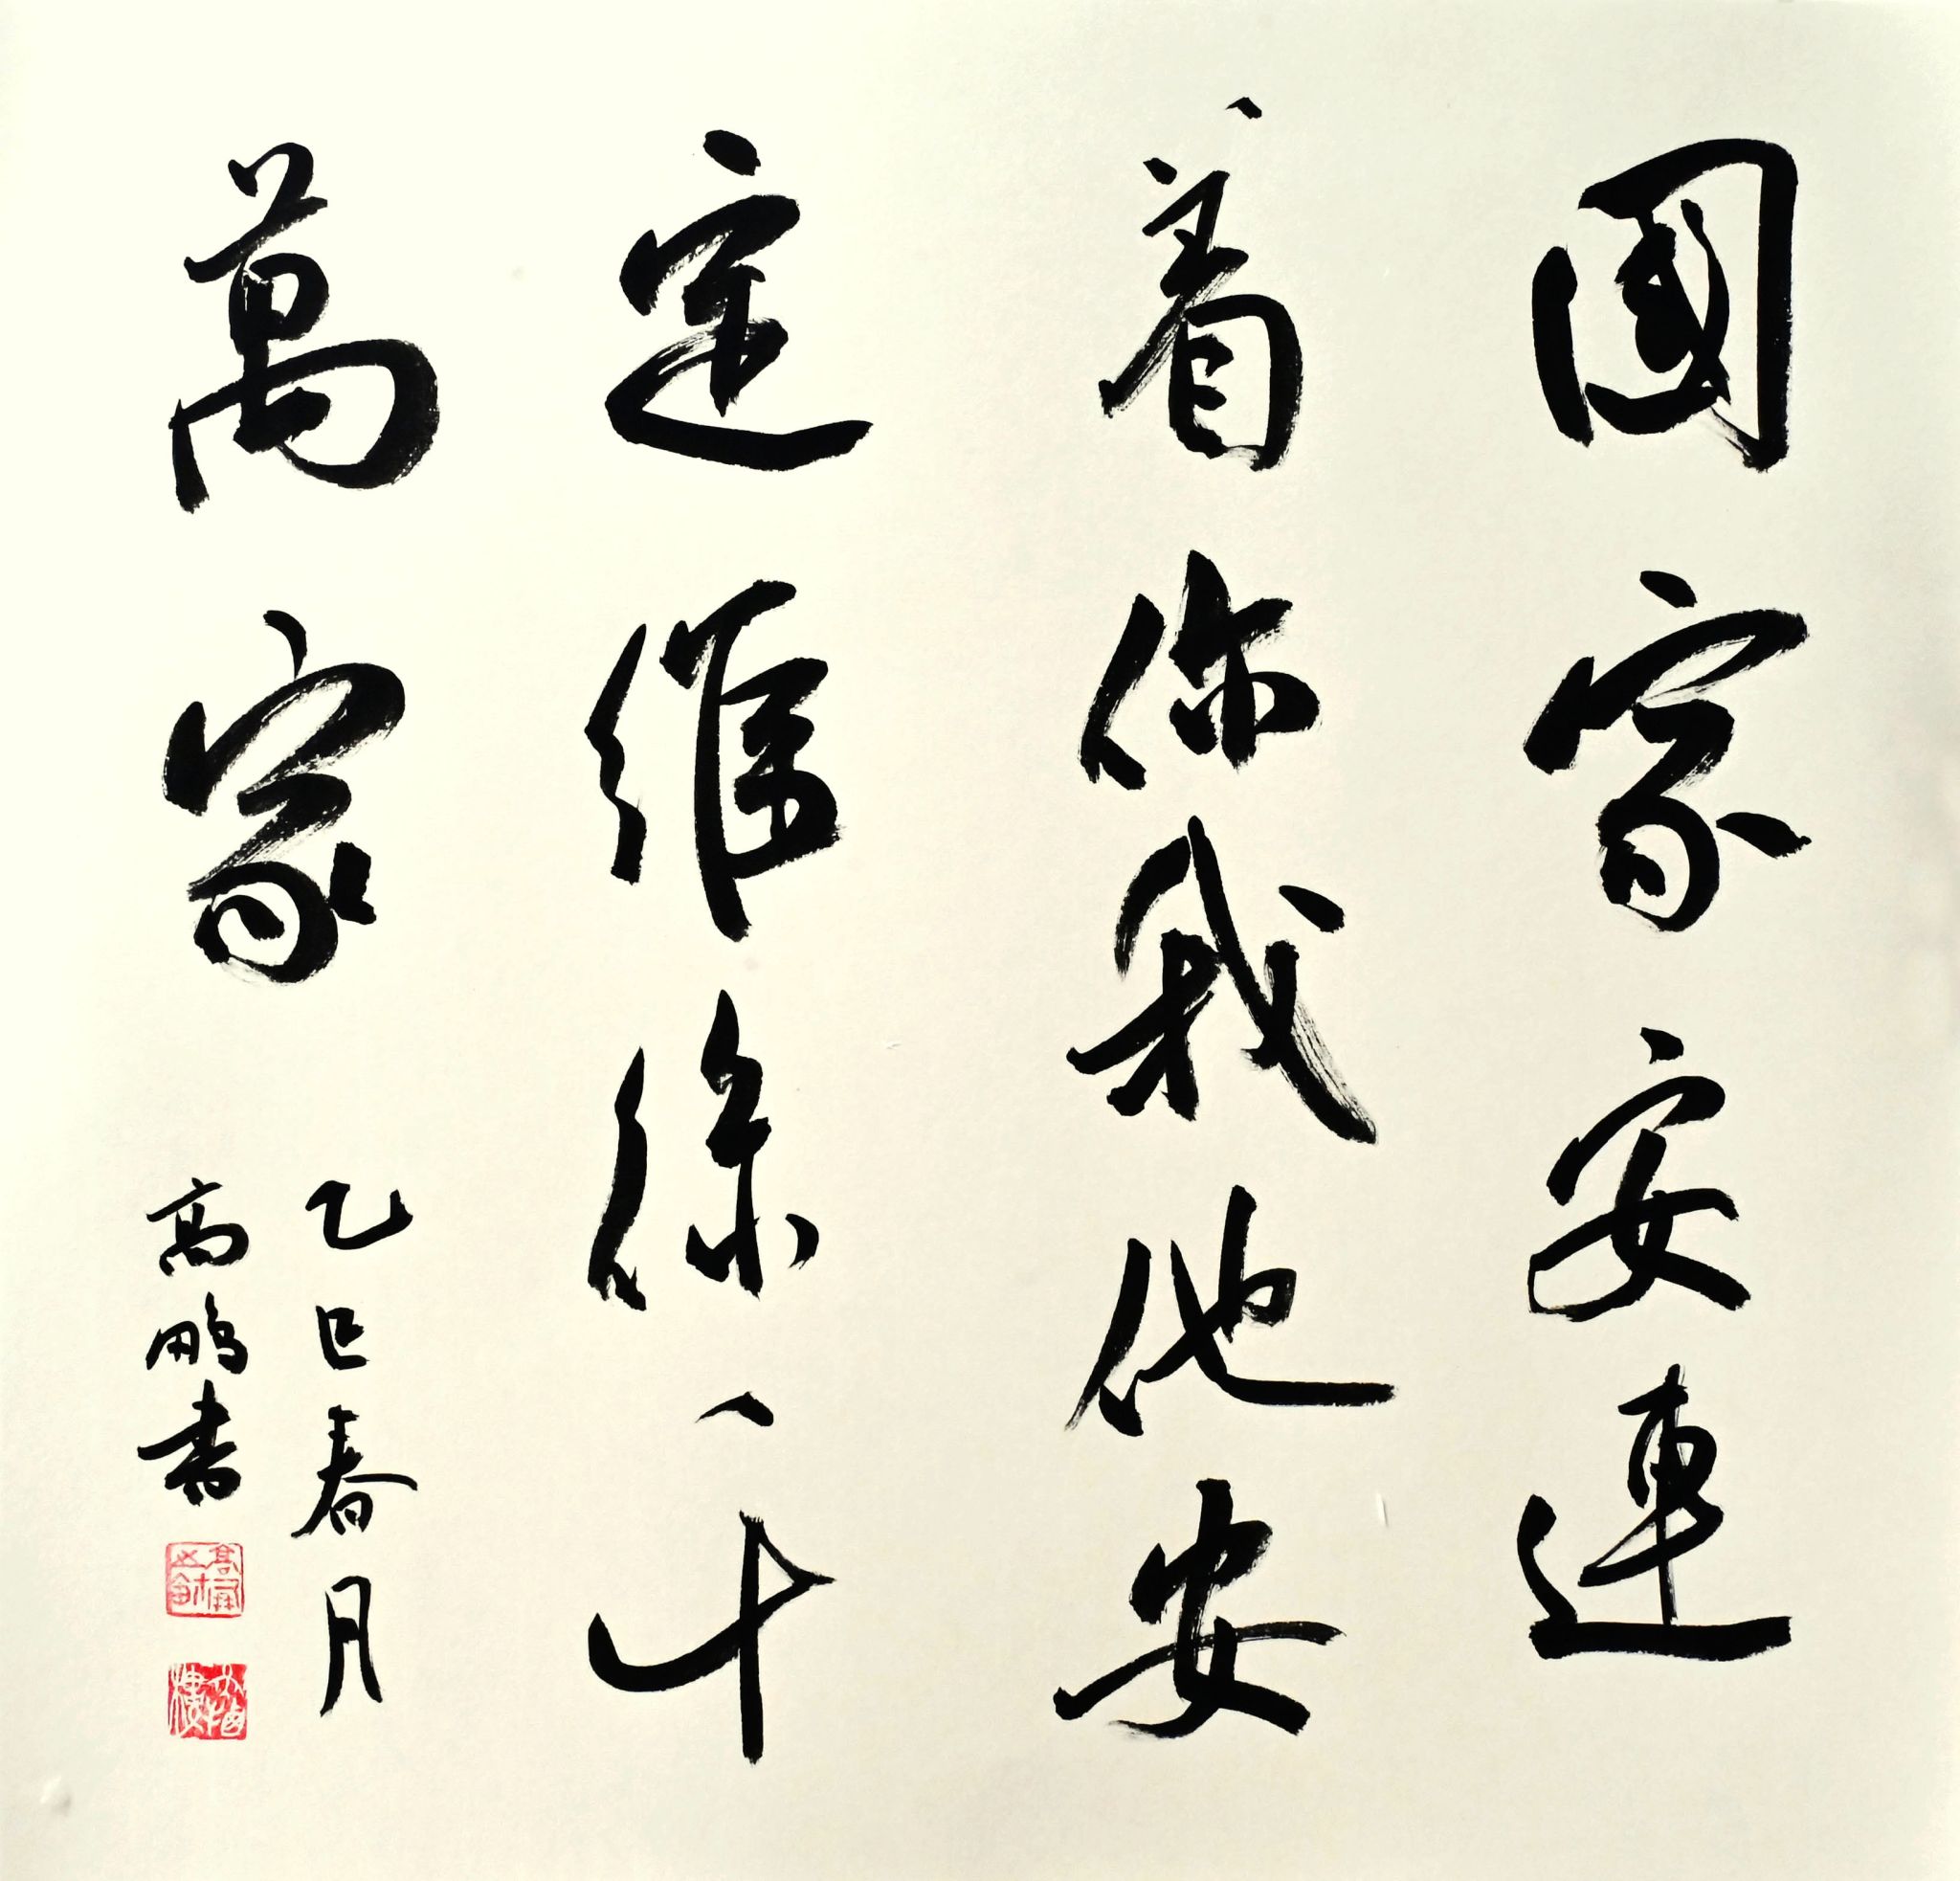 國家安連
着你我他安
定維係千
萬家
乙巳春月
高鵬書